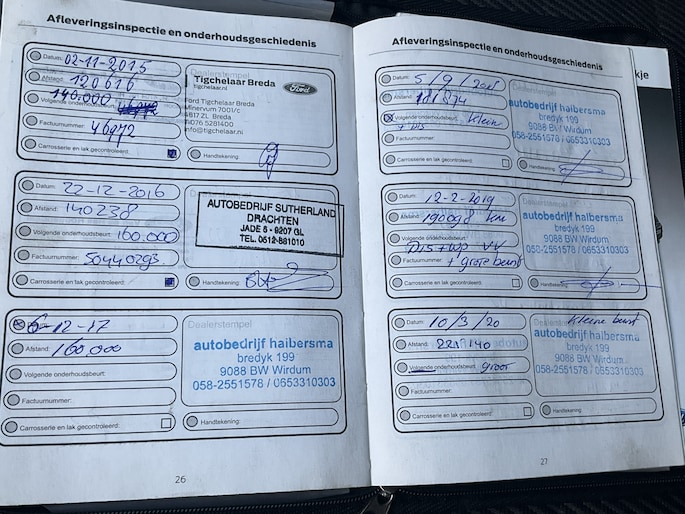 Afleveringsinspectie en onderhoudsgeschiedenis
Datum: 02-11-2015
Afstand: 120616
140.000
Volgende onderhoudsbeurt:
Factuurnummer: 46972
Carrosserie en lak gecontroleerd:
Dealerstempel
Tigchelaar Breda
tigchelaar.nl
Ford
Ford Tigchelaar Breda
Minervum 7001/c
4817 ZL Breda
076 5281400
info@tigchelaar.nl
Handtekening:
Datum: 22-12-2016
Afstand: 140238
Volgende onderhoudsbeurt: 160.000
Factuurnummer: 50440293
Carrosserie en lak gecontroleerd:
AUTOBEDRIJF SUTHERLAND
DRACHTEN
JADE 5 - 9207 GL
TEL. 0512-881010
Handtekening:
6-12-17
Afstand: 160,000
Volgende onderhoudsbeurt:
Factuurnummer:
Carrosserie en lak gecontroleerd:
Dealerstempel
autobedrijf haibersma
bredyk 199
9088 BW Wirdum
058-2551578 / 0653310303
Handtekening:
26
Afleveringsinspectie en onderhoudsgeschiedenis
Datum: 5/9/
Afstand:
Volgende onderhoudsbeurt: Klein
Factuurnummer:
Carrosserie en lak gecontroleerd:
Dealerstempel
autobedrijf haibersma
bredyk 199
9088 BW Wirdum
058-2551578 / 0653310303
Handtekening:
Datum: 12-2-2019
Afstand: 190098 km
Volgende onderhoudsbeurt:
Factuurnummer: + grote beurt
Carrosserie en lak gecontroleerd:
Dealerstempel
autobedrijf haibersma
bredyk 199
9088 BW Wirdum
058-2551578 / 0653310303
Handtekening:
Datum: 10/3/20
Afstand: 221140
Volgende onderhoudsbeurt: groot
Factuurnummer:
Carrosserie en lak gecontroleerd:
Dealerstempel Kleine beurt
autobedrijf haibersma
bredyk 199
9088 BW Wirdum
058-2551578 / 0653310303
Handtekening:
27
kje